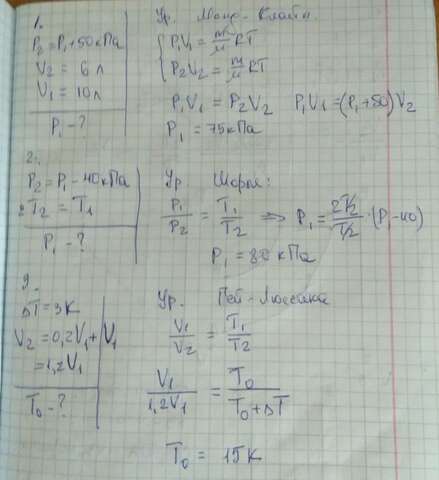 1.
P₂ = P₁ + 50 кПа
V₂ = 6 л
V₁ = 10 л
P₁ - ?
Ур. Менд - Клайп.
P₁V₁ = m/μ RT
P₂V₂ = m/μ RT
P₁V₁ = P₂V₂ P₁V₁ = (P₁ + 50) V₂
P₁ = 75 кПа
2.
P₂ = P₁ - 40 кПа
2T₂ = T₁
P₁ - ?
Ур Шарля:
P₁/P₂ = T₁/T₂ => P₁ = 2T₂/T₂ · (P₁ - 40)
P₁ = 80 кПа
9.
ΔT = 3 K
V₂ = 0,2V₁ + V₁
= 1,2V₁
T₀ - ?
Ур. Гей - Люссака
V₁/V₂ = T₁/T₂
V₁/1,2V₁ = T₀/T₀ + ΔT
T₀ = 15 K